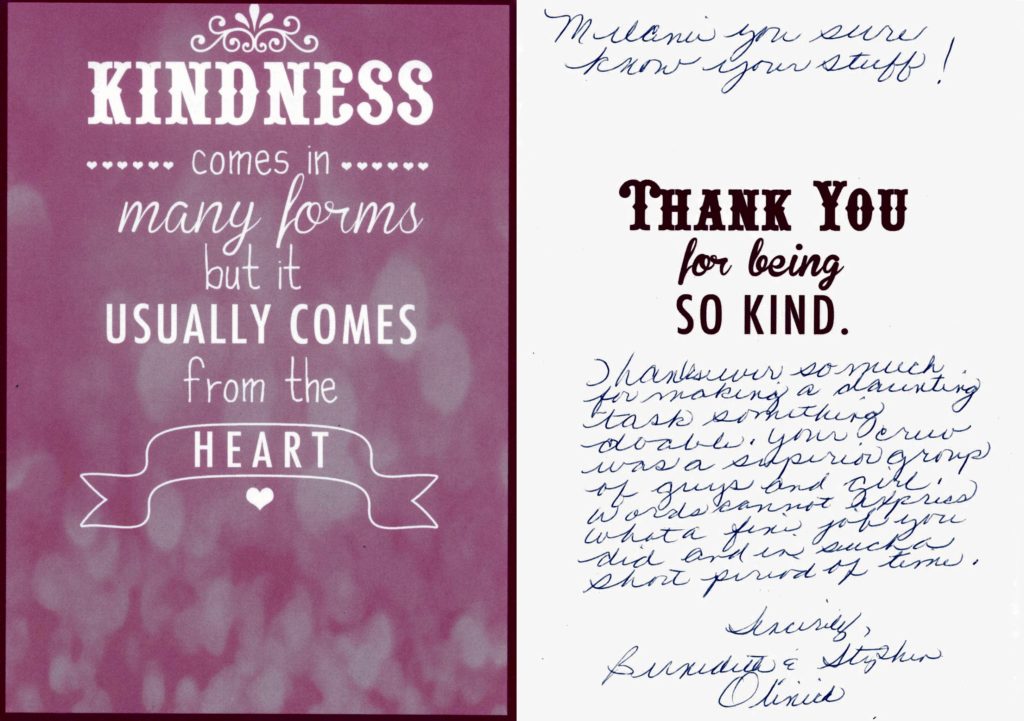 KINDNESS
comes in
many forms
but it
USUALLY COMES
from the
HEART
Melanie you sure
know your stuff!
THANK YOU
for being
SO KIND.
Thanks ever so much
for making a daunting
task something
doable. Your crew
was a superior group
of guys and girl.
Words cannot express
what a fine job you
did and in such a
short period of time.
Sincerely,
Bernedette & Stephen